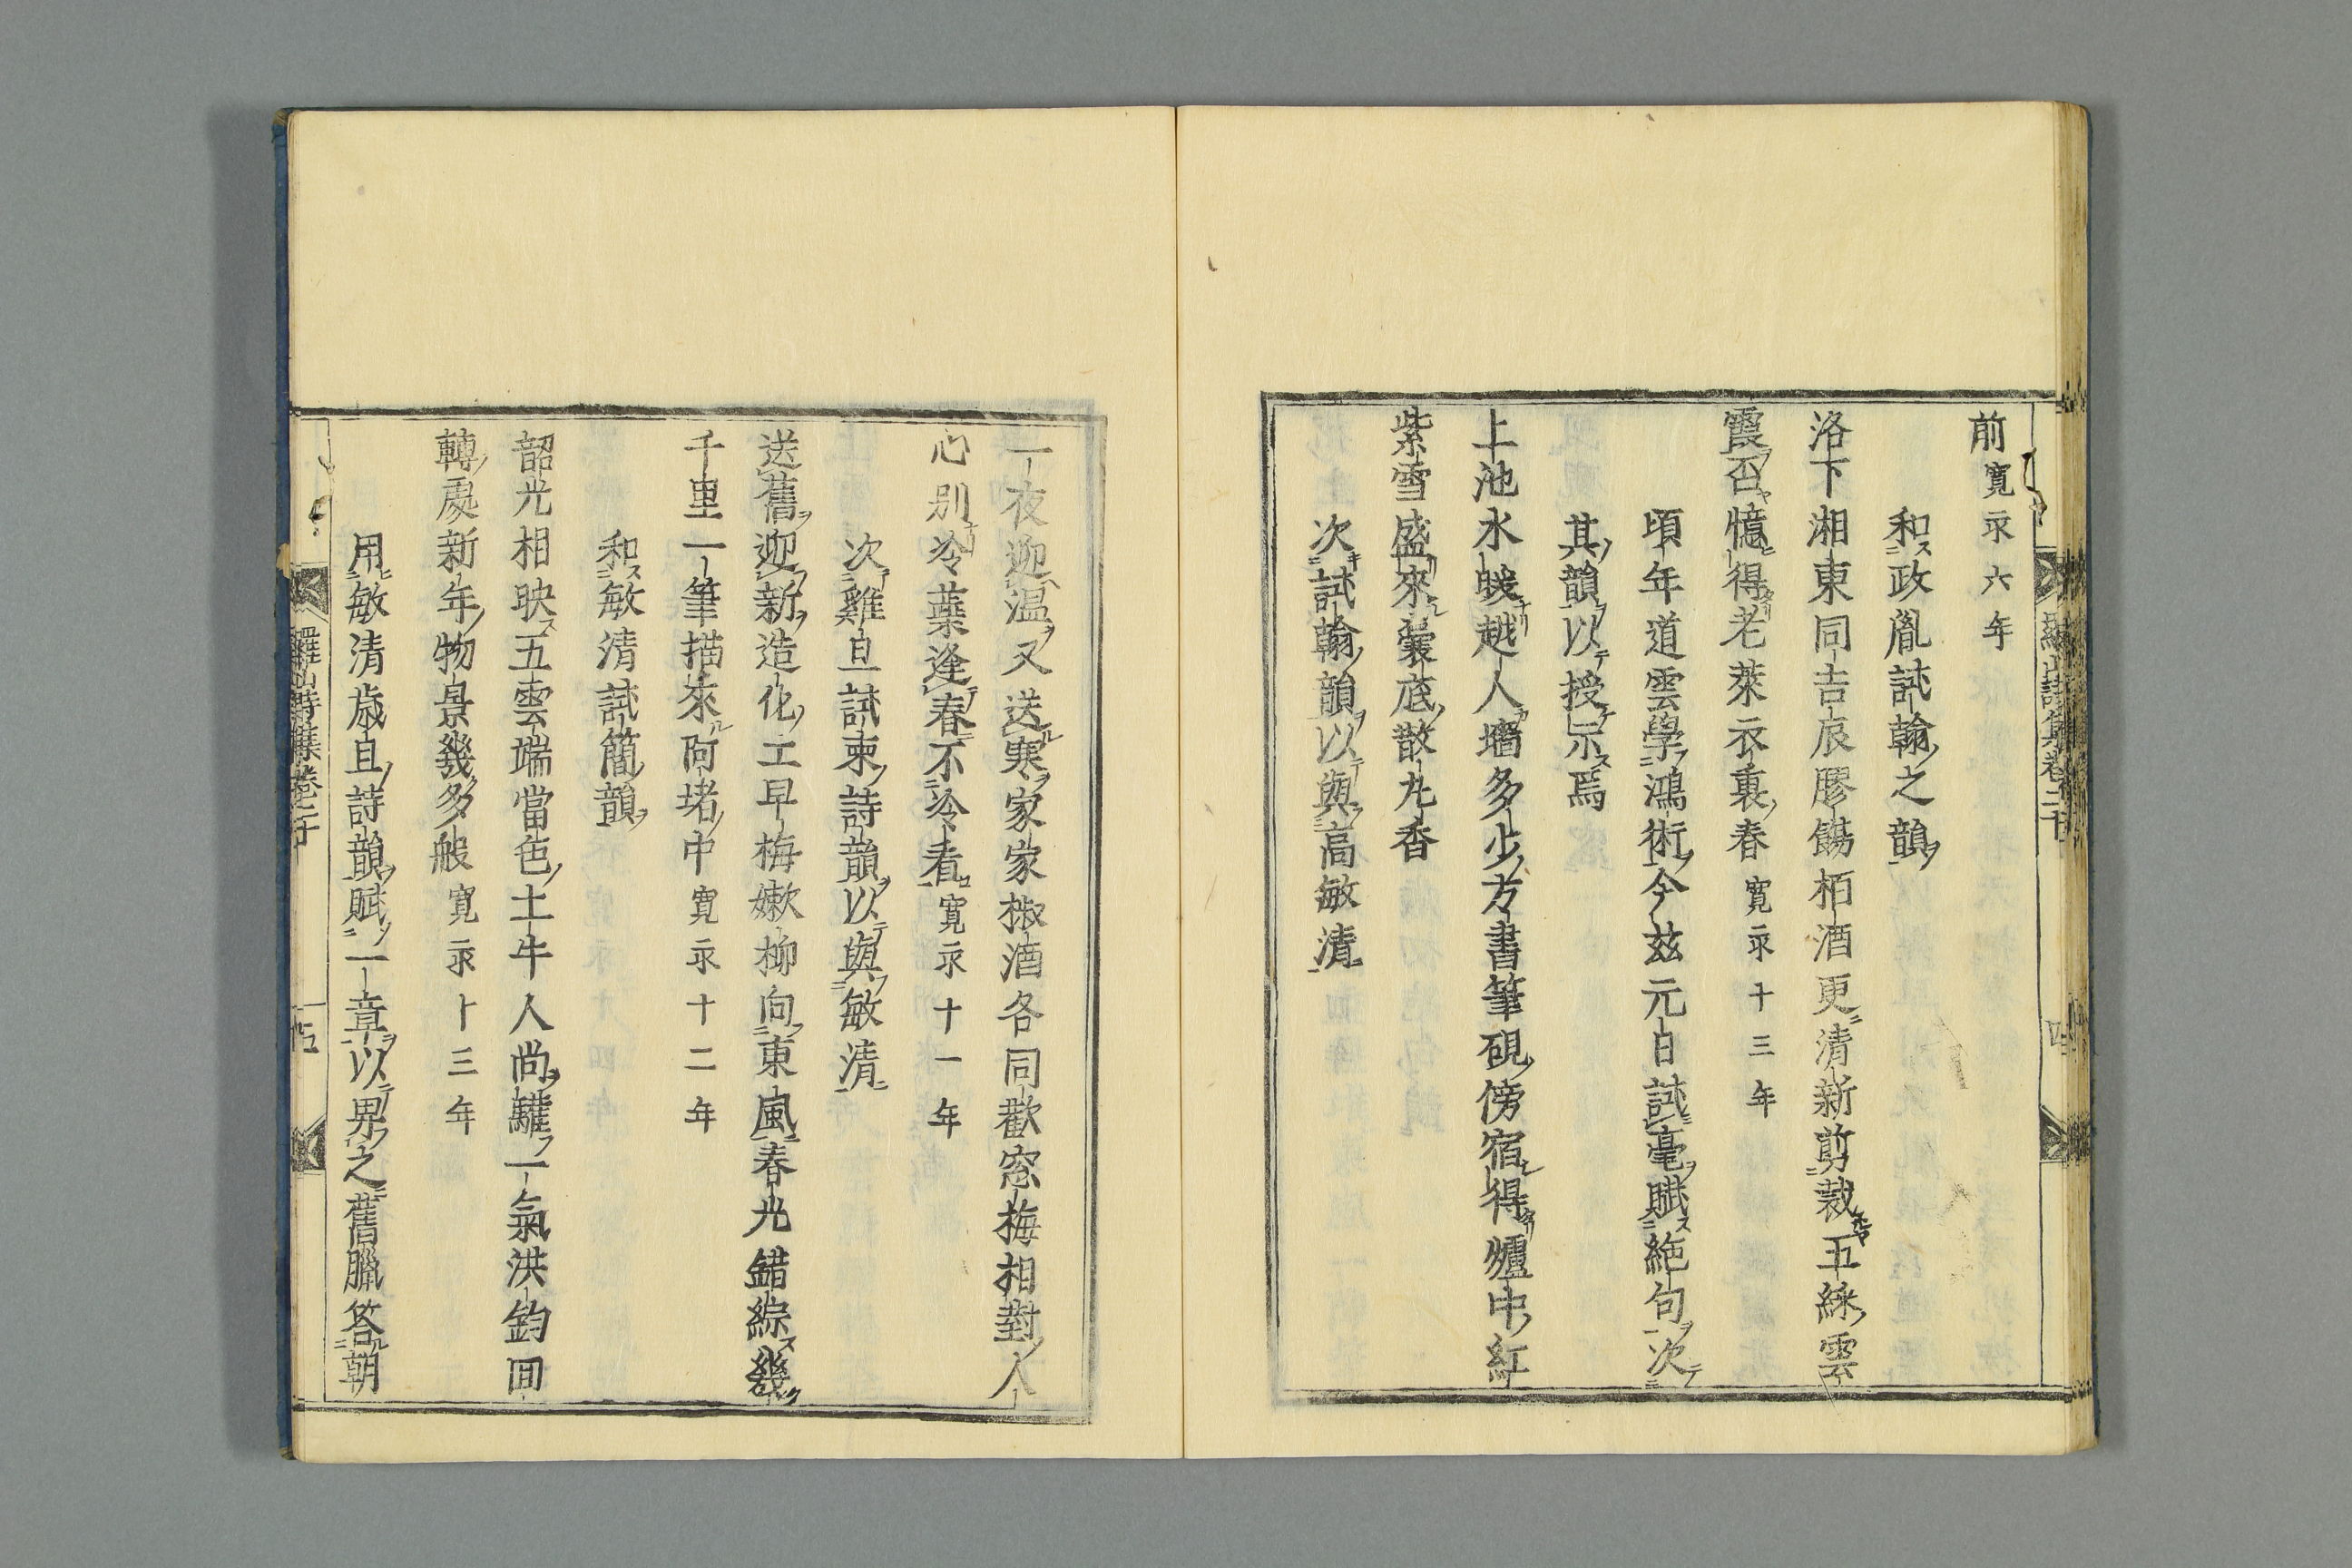 前寛永六年
和政胤試翰之韻
洛下湘東同吉辰膠餳栢酒更清新剪裁五綵雲
霞否憶得老萊衣裏春寛永十三年
頃年道雲學鴻術今茲元日試毫賦絶句次
其韻以授示焉
上池水暖越人墻多少方書筆硯傍宿得爐中紅
紫雪盛來囊底散九香
次試翰韻以與高敏清
一夜迎温又送寒家家椒酒各同歡窓梅相對人
心別冷蘂逢春不冷看寛永十一年
次雞旦試柬詩韻以與敏清
送舊迎新造化工早梅嫰柳向東風春光錯綜幾
千里一筆描來阿堵中寛永十二年
和敏清試簡韻
韶光相映五雲端當色土牛人尚驩一氣洪鈞囬
轉處新年物景幾多般寛永十三年
用敏清歳旦詩韻賦一章以畀之舊臘答朝
羅山詩集卷二十